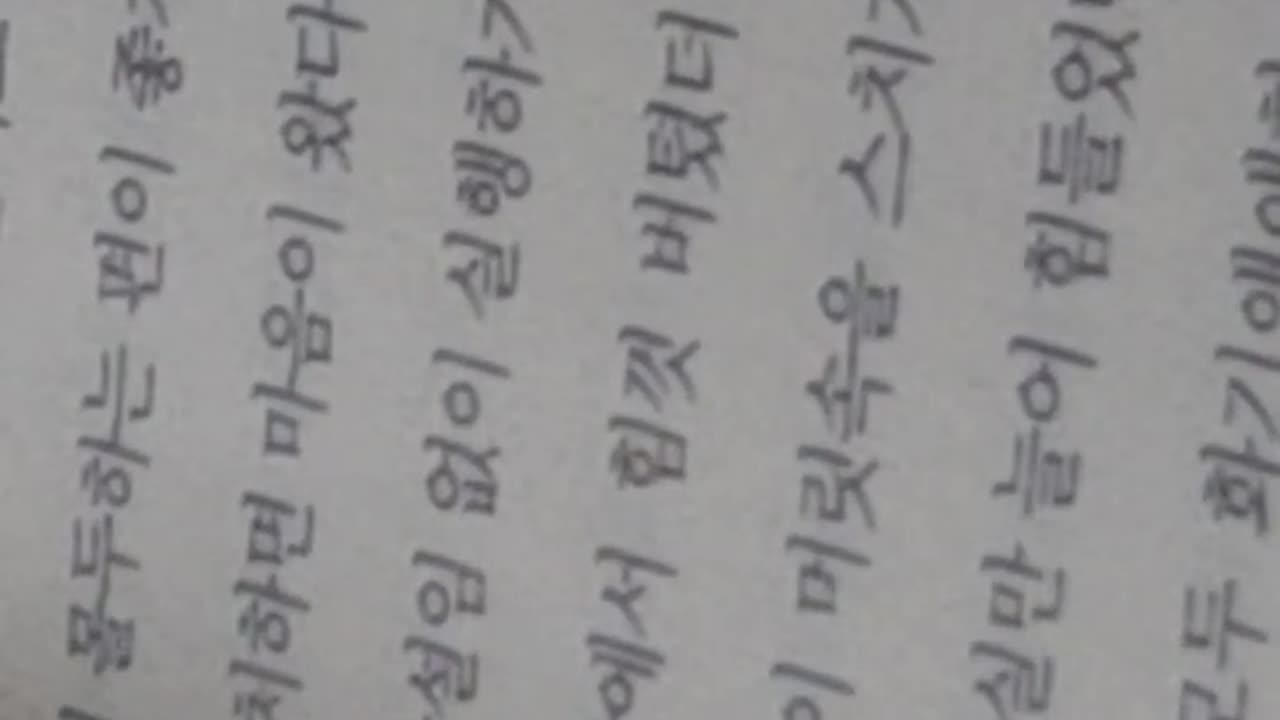 몰두하는 편이 좋
치하면 마음이 왔다
설임 없이 실행하
에서 힘껏 버텼더
이 머릿속을 스치
실만 늘어 힘들었
모두 화기애애